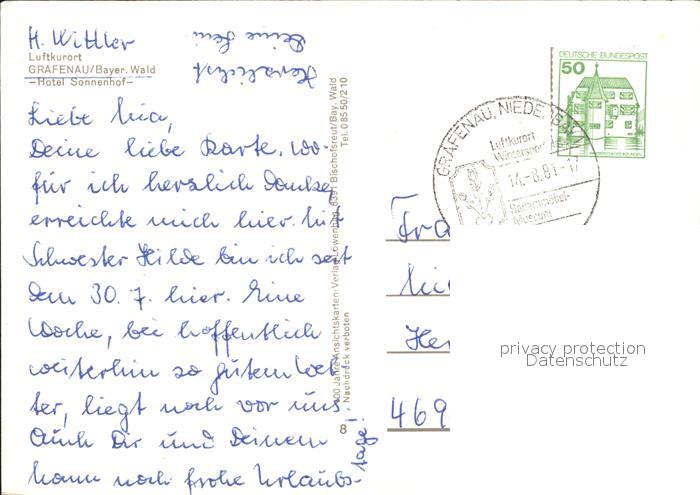 H. Wittler
Luftkurort
GRAFENAU/Bayer. Wald
—Hotel Sonnenhof—
Liebe Mia,
Deine liebe Karte, wo-
für ich herzlich Danke
erreichte mich hier. Mit
Schwester Hilde bin ich seit
dem 30. 7. hier. Eine
Woche, bei hoffentlich
weiterhin so gutem Wet-
ter, liegt noch vor uns.
Auch Dir und Deinem
Mann noch frohe Urlaubs-
tage!
Herzlichst
Deine
Ansichtskarten-Verlag Löwenhag, 8391 Bischofsreut/Bay. Wald
Tel. 08550/210
Nachdruck verboten
8
DEUTSCHE BUNDESPOST
50
GRAFENAU, NIEDERBAY
Luftkurort
Wintersport
14.-8.81-17
Bauernmöbel-
Museum
Fra
Her
469
privacy protection
Datenschutz